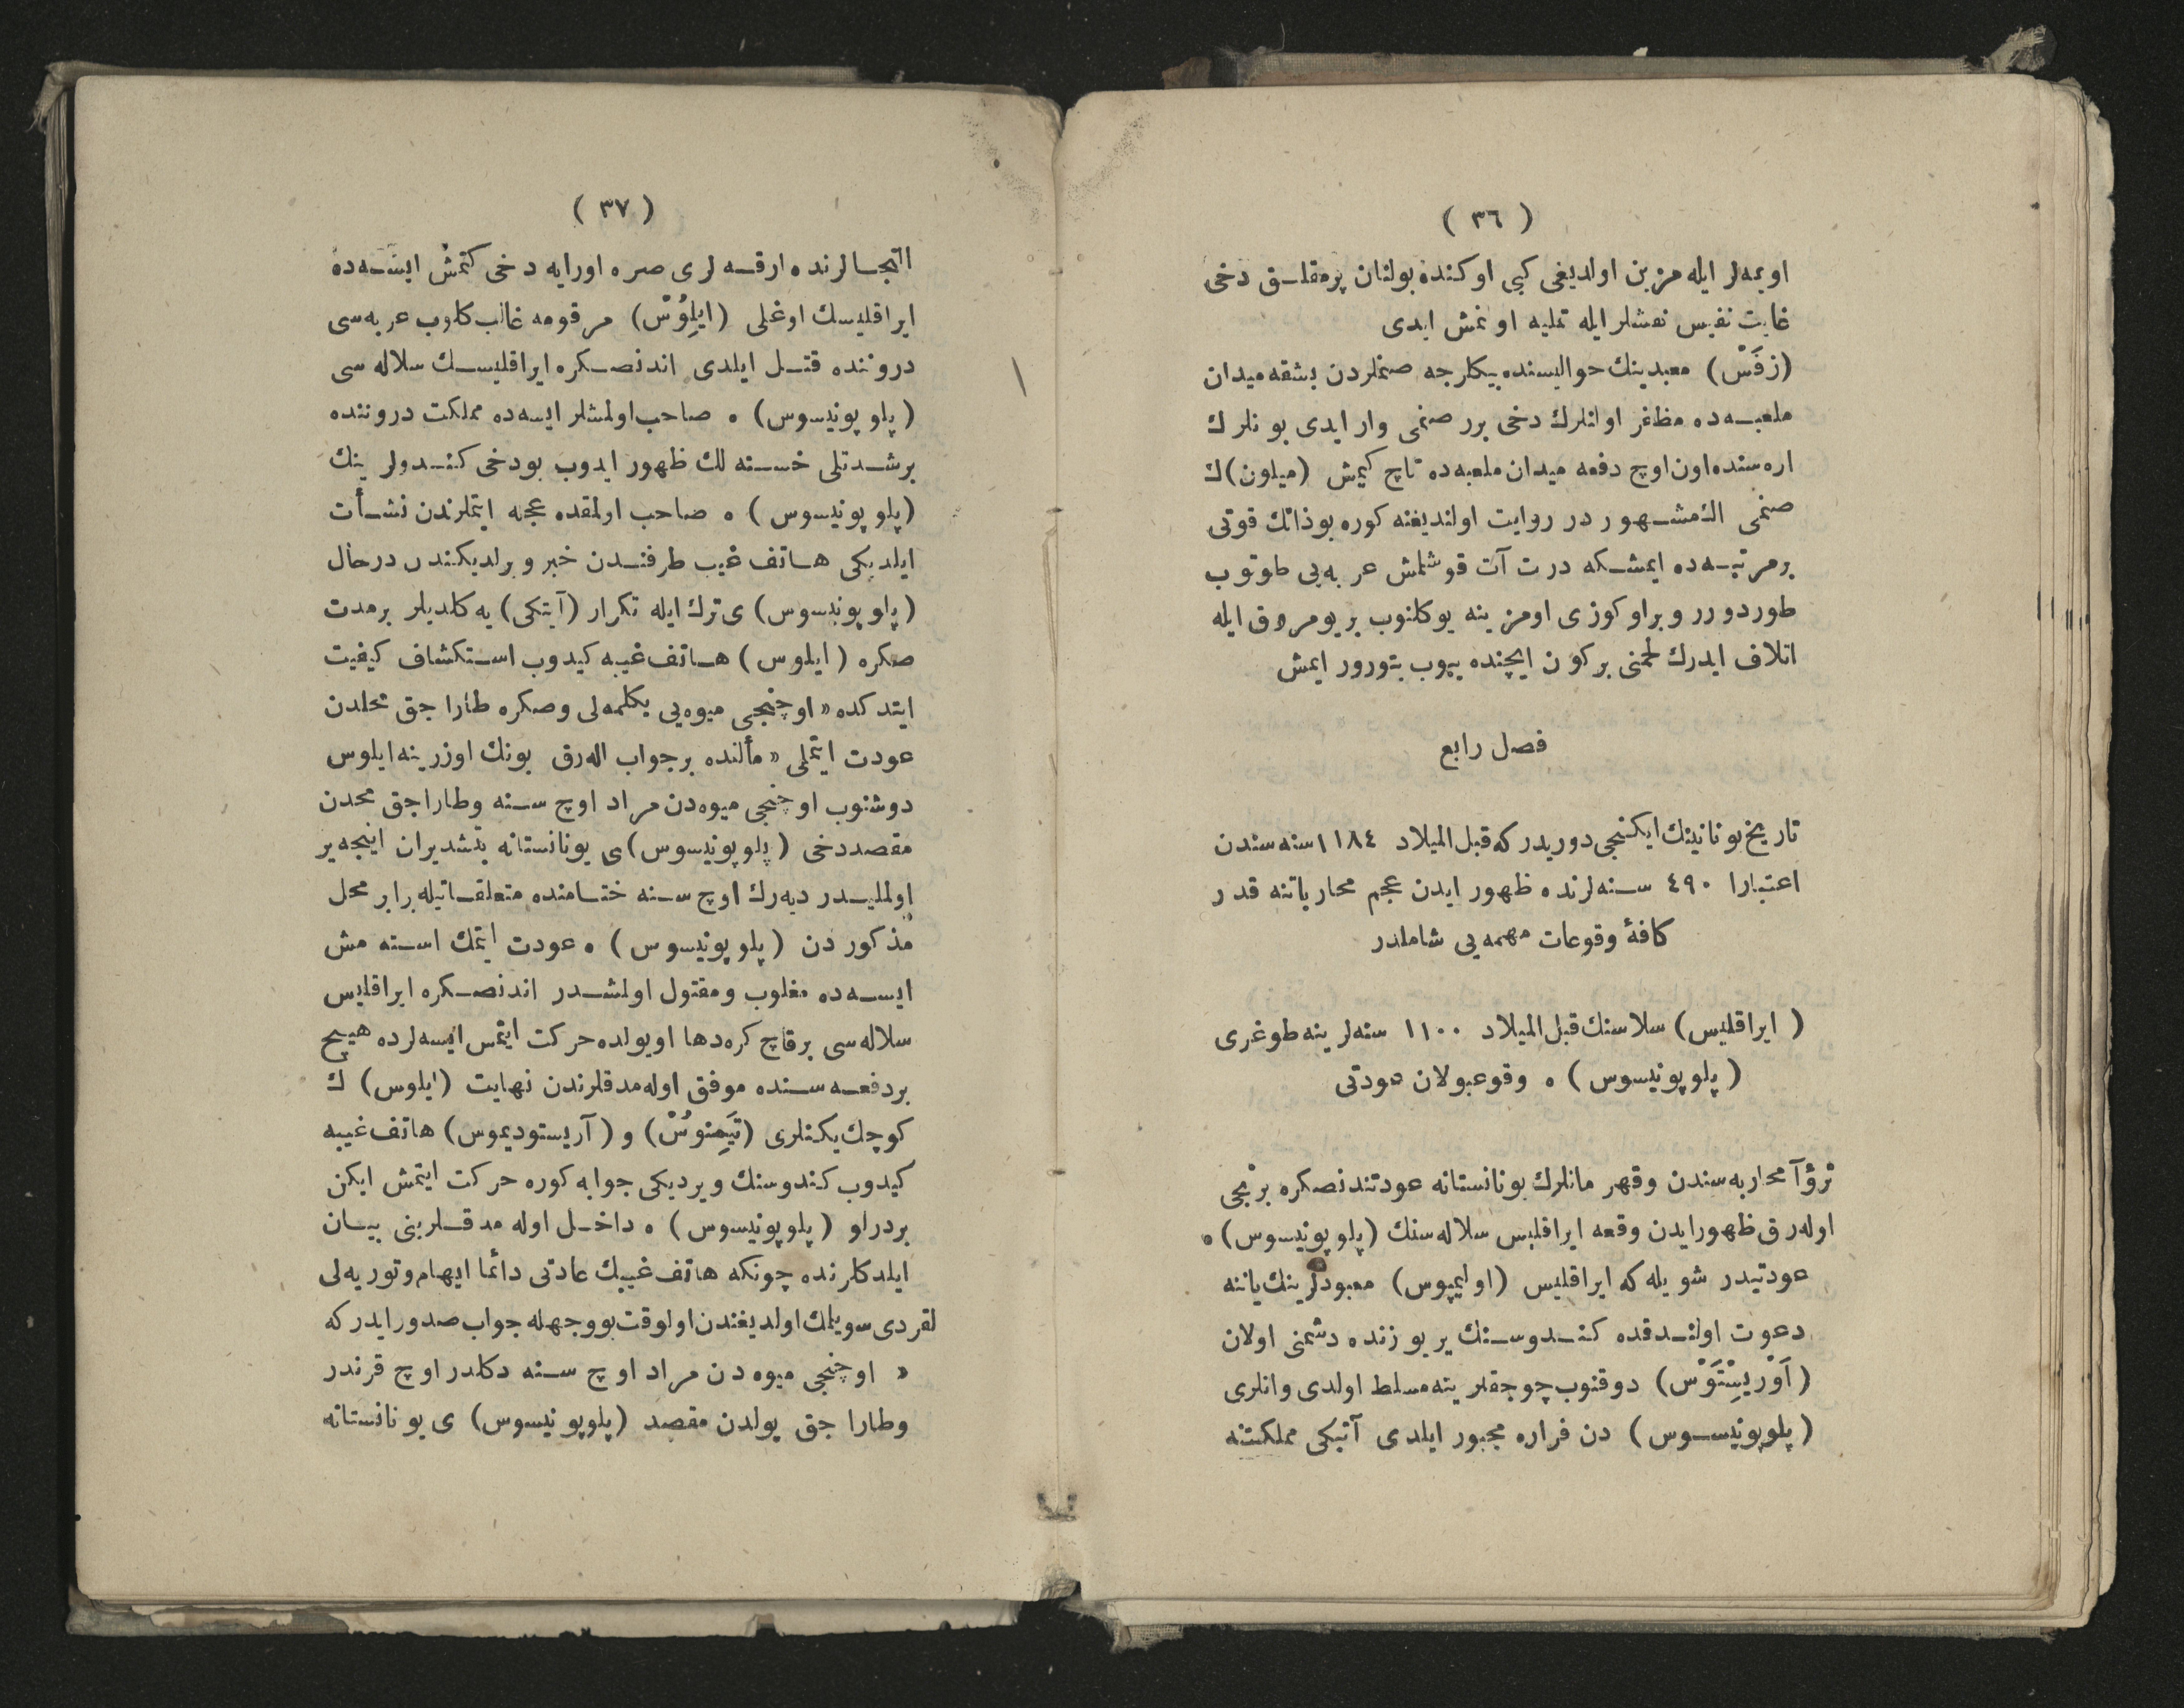 ( ٣٦ )
اويمه‌لر ايله مزين اولديغى كبى اوكنده بولنان پرمقلق دخى
غايت نفيس نقشلر ايله تمليه اونمش ايدى
(زفَسْ) معبدينك حواليسنده بيكلرجه صنملردن بشقه ميدان
ملعبه‌ده مظفر اولانلرك دخى برر صنمى وار ايدى بونلرك
اره‌سنده اون اوچ دفعه ميدان ملعبه‌ده تاج كيمش (ميلون)ك
صنمى الك مشهوردر روايت اولنديغنه كوره بوذاتك قوتى
برمرتبه‌ده ايمشكه درت آت قوشلمش عربه‌يى طوتوب
طوردورر وبراوكوزى اومزينه يوكلنوب بريومروق ايله
اتلاف ايدرك لحمنى بركون ايچنده ييوب بتورور ايمش
فصل رابع
تاريخ يونانينك ايكنجى دوريدر كه قبل الميلاد ١١٨٤ سنه سندن
اعتبارا ٤٩٠ سنه‌لرنده ظهور ايدن عجم محارباتنه قدر
كافهٔ وقوعات مهمه‌يى شاملدر
( ايراقليس) سلاسنك قبل الميلاد ١١٠٠ سنه‌لرينه طوغرى
(پلوپونيسوس) ه وقوعبولان عودتى
ترۆآ محاربه‌سندن وقهرمانلرك يونانستانه عودتندنصكره برنجى
اوله‌رق ظهورايدن وقعه ايراقليس سلاله‌سنك (پلوپونيسوس)ه
عودتيدر شويله كه ايراقليس (اوليمپوس) معبودلرينك ياننه
دعوت اولندقده كندوسنك يريوزنده دشمنى اولان
(اَوْريسِتَوْس) دوقنوب چوجقلرينه مسلط اولدى وانلرى
(پلوپونيسوس) دن فراره مجبور ايلدى آتيكى مملكتنه
( ٣٧ )
التجالرنده ارقه‌لرى صره اورايه دخى كتمش ايسه‌ده
ايراقليسك اوغلى (ايلِوُسْ) مرقومه غالب كلوب عربه‌سى
دروننده قتل ايلدى اندنصكره ايراقليسك سلاله‌سى
(پلوپونيسوس) ه صاحب اولمشلر ايسه‌ده مملكت دروننده
برشدتلى خسته لك ظهور ايدوب بودخى كندولرينك
(پلوپونيسوس) ه صاحب اولمقده عجله ايتملرندن نشأت
ايلديكى هاتف غيب طرفندن خبر ويرلديكندن درحال
(پلوپونيسوس) ى ترك ايله تكرار (آتيكى) يه كلديلر برمدت
صكره (ايلوس) هاتف غيبه كيدوب استكشاف كيفيت
ايتدكده « اوچنجى ميوه‌يى بكلمه‌لى وصكره طارا جق محلدن
عودت ايتملى » مألنده برجواب اله‌رق بونك اوزرينه ايلوس
دوشنوب اوچنجى ميوه‌دن مراد اوچ سنه وطاراجق محلدن
مقصددخى (پلوپونيسوس)ى يونانستانه بتشديران اينجه‌ير
اولمليدر ديه‌رك اوچ سنه ختامنده متعلقاتيله برابر محل
مذكوردن (پلوپونيسوس) ه عودت ايتمك استه‌مش
ايسه‌ده مغلوب ومقتول اولمشدر اندنصكره ايراقليس
سلاله‌سى برقاچ كره‌دها اويولده حركت ايتمش ايسه‌لرده هيچ
بردفعه‌سنده موفق اوله‌مدقلرندن نهايت (ايلوس) ك
كوچك يكنلرى (تَيمِنوُسْ) و (آريستوديموس) هاتف غيبه
كيدوب كندوسنك ويرديكى جوابه كوره حركت ايتمش ايكن
بردرلو (پلوپونيسوس) ه داخل اوله مدقلرينى بيان
ايلدكلرنده چونكه هاتف غيبك عادتى دائما ايهام وتوريه‌لى
لقردى سويلمك اولديغندن اولوقت بووجهله جواب صدورايدركه
« اوچنجى ميوه‌دن مراد اوچ سنه دكلدر اوچ قرندر
وطارا جق يولدن مقصد (پلوپونيسوس) ى يونانستانه